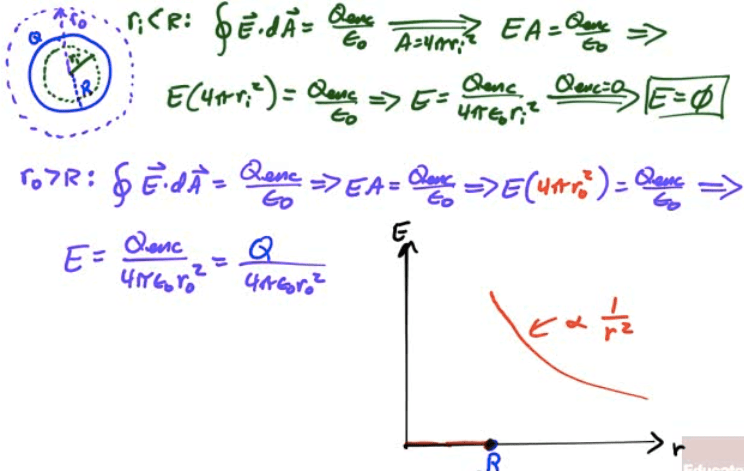 Q r₀ rᵢ R
rᵢ < R: ∮ E⃗·dA⃗ = Qenc/ε₀ ⟹ A=4πrᵢ² EA = Qenc/ε₀ ⟹
E(4πrᵢ²) = Qenc/ε₀ ⟹ E = Qenc/4πε₀rᵢ² Qenc=0 ⟹ E=∅
r₀ > R: ∮ E⃗·dA⃗ = Qenc/ε₀ ⟹ EA = Qenc/ε₀ ⟹ E(4πr₀²) = Qenc/ε₀ ⟹
E = Qenc/4πε₀r₀² = Q/4πε₀r₀²
E
← ∝ 1/r²
r
R
Educato